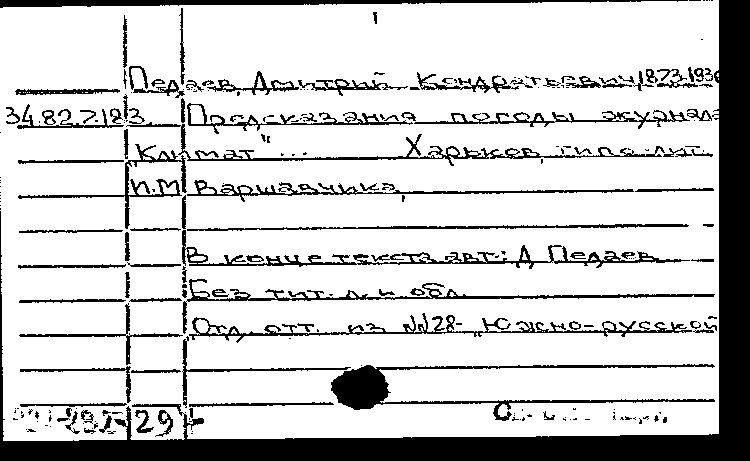 Педаев, Дмитрий Кондратьевич, 1873-193
34.82.7.183. Предсказания погоды журнала
"Климат" ... Харьков, типо-лит.
И.М Варшавчика,
В конце текста авт.: Д Педаев
Без тит. л. и обл.
Отд. отт. из №№28- "Южно-русской
29